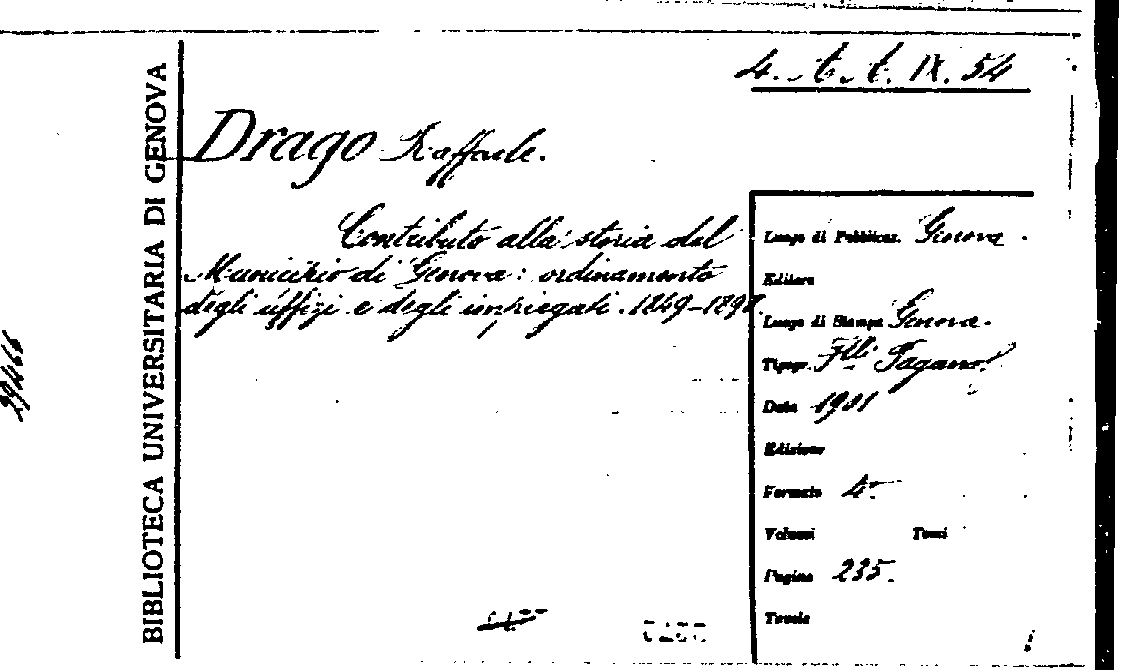 4. A. A. IX. 54
BIBLIOTECA UNIVERSITARIA DI GENOVA
Drago Raffaele.
Contributo alla storia del
Municipio di Genova: ordinamento
degli uffizi e degli impiegati. 1849-1898.
Luogo di Pubblicaz. Genova.
Editore
Luogo di Stampa Genova.
Tipogr. F.lli Pagano.
Data 1901
Edizione
Formato 4°
Volumi Tomi
Pagine 235.
Tavole
29466